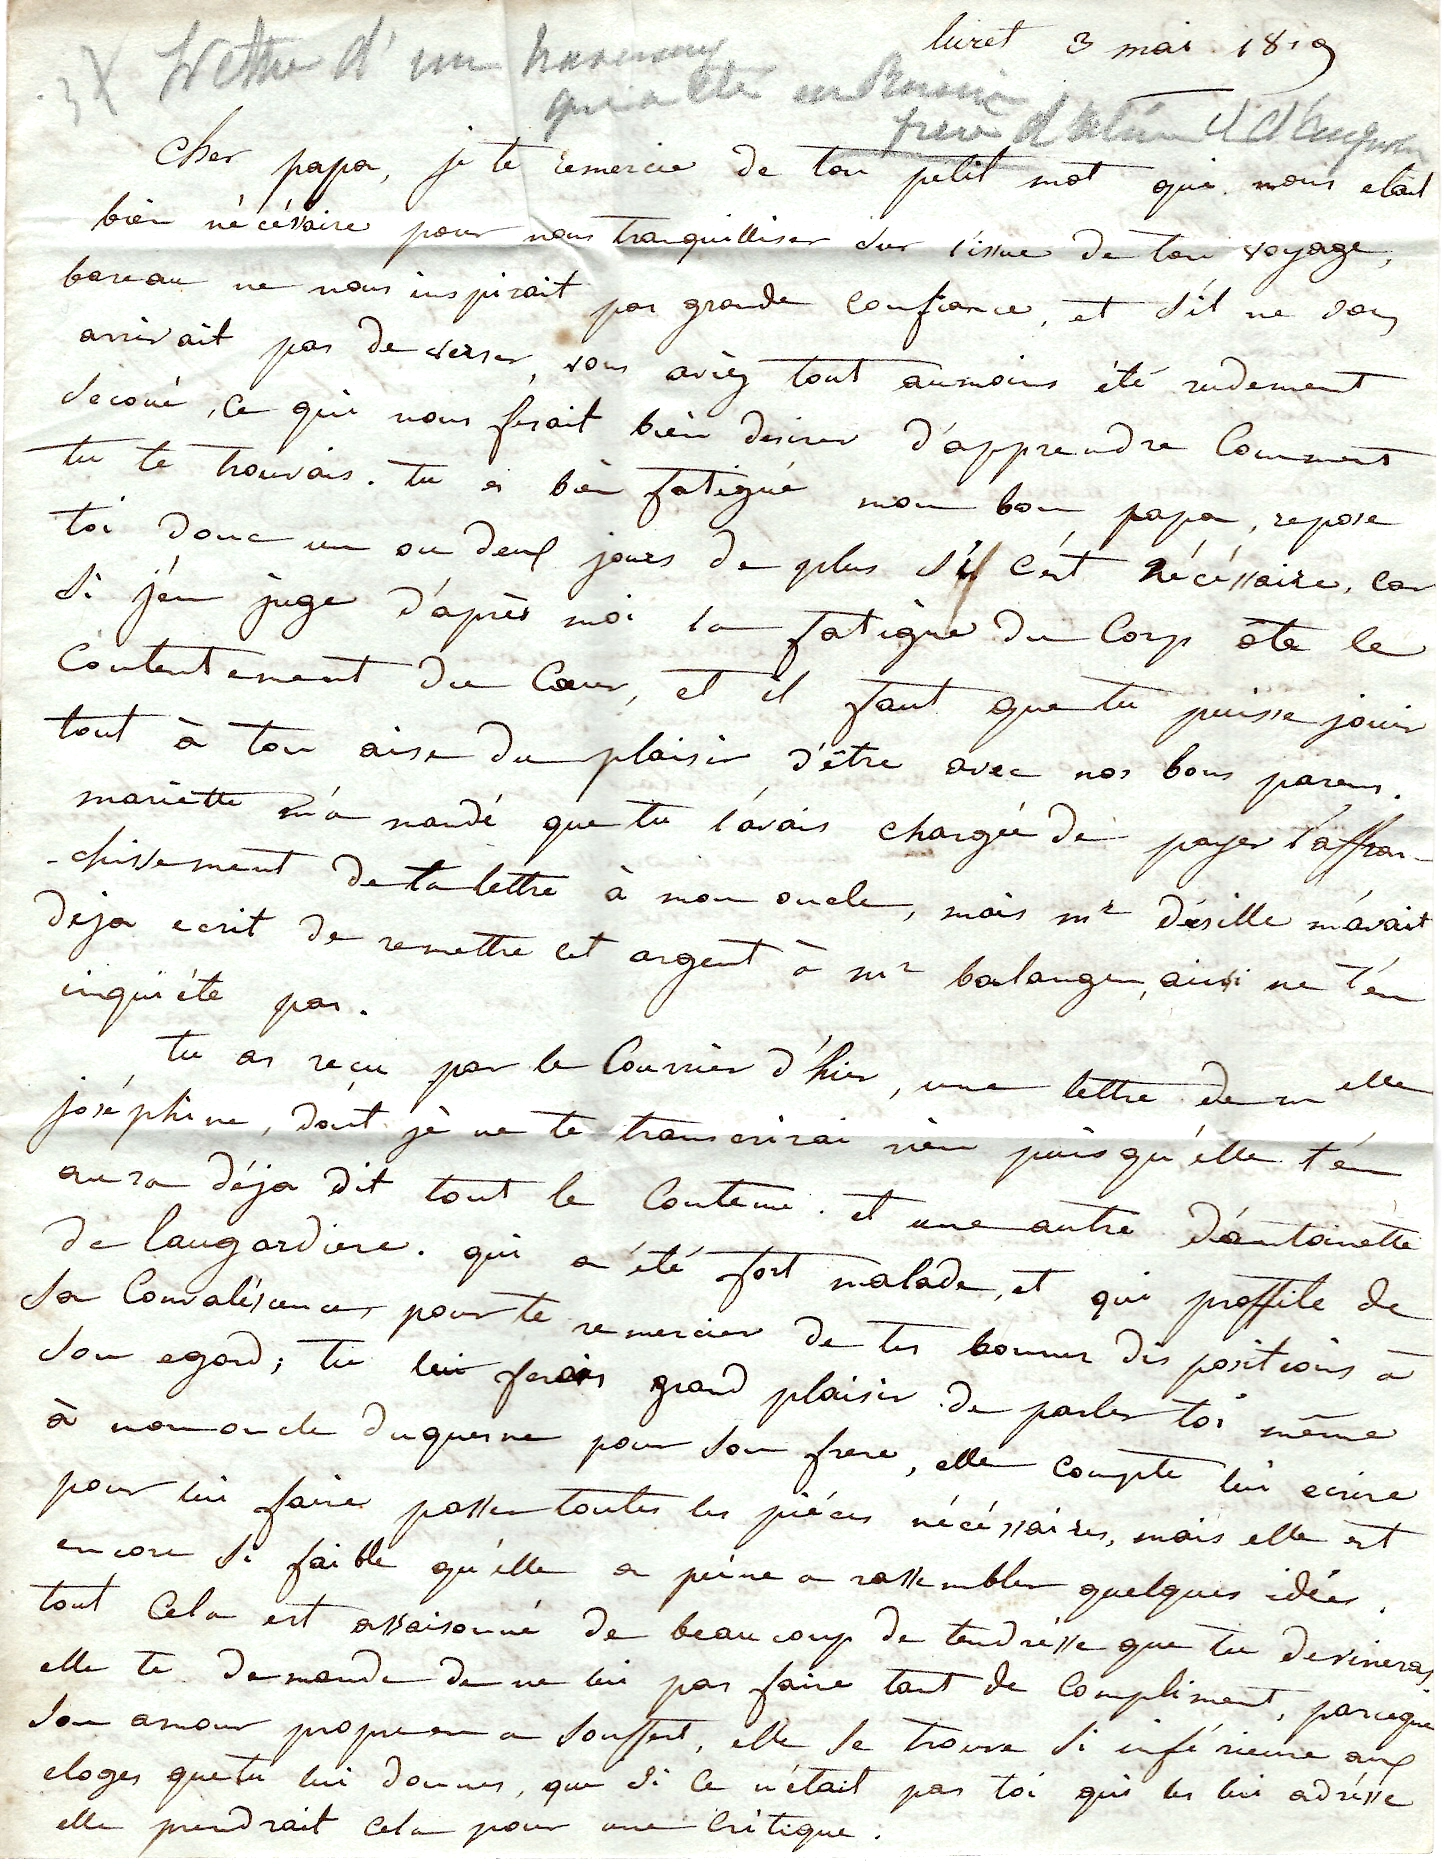 luret 3 mai 1819
Lettre d'un
qui a été en Russie
frere d' et d'
Cher papa, je te remercie de ton petit mot qui nous etait
bien nécéssaire pour nous tranquilliser sur l'issue de ton voyage,
bareau ne nous inspirait pas grande confiance, et s'il ne vous
arrivait pas de verser, vous aviez tout aumoins été rudement
secoué, ce qui nous fesait bien desirer d'apprendre comment
tu te trouvais. tu es bien fatigué mon bon papa, repose
toi donc un ou deux jours de plus s'il c'est nécéssaire, car
si j'en juge d'après moi la fatigue du corp ôte le
contentement du cœur, et il faut que tu puisse jouir
tout à ton aise du plaisir d'être avec nos bons parens.
mariette m'a mandé que tu l'avais chargée de payer l'affran-
-chissement de ta lettre à mon oncle, mais mr désille m'avait
deja ecrit de remettre cet argent à mr balanger, ainsi ne t'en
inquiéte pas.
tu as reçu par le courrier d'hier, une lettre de melle
joséphine, dont je ne te transcrirai rien puisqu'elle t'en
aura déja dit tout le contenu. et une autre d'antoinette
de laugardiere. qui a été fort malade, et qui proffite de
sa convaléscence pour te remercier de tes bonnes dispositions à
son egard; tu lui ferais grand plaisir de parler toi même
à mon oncle duquesne pour son frere, elle compte lui ecrire
pour lui faire passer toutes les piéces nécéssaires, mais elle est
encore si faible qu'elle a peine a rassembler quelques idées.
tout cela est assaisonné de beaucoup de tendrésse que tu devineras,
elle te demande de ne lui pas faire tant de compliment, parceque
son amour propre en a souffert, elle se trouve si inférieure aux
eloges que tu lui donnes, que si ce n'était pas toi qui les lui adrésse
elle prendrait cela pour une critique.